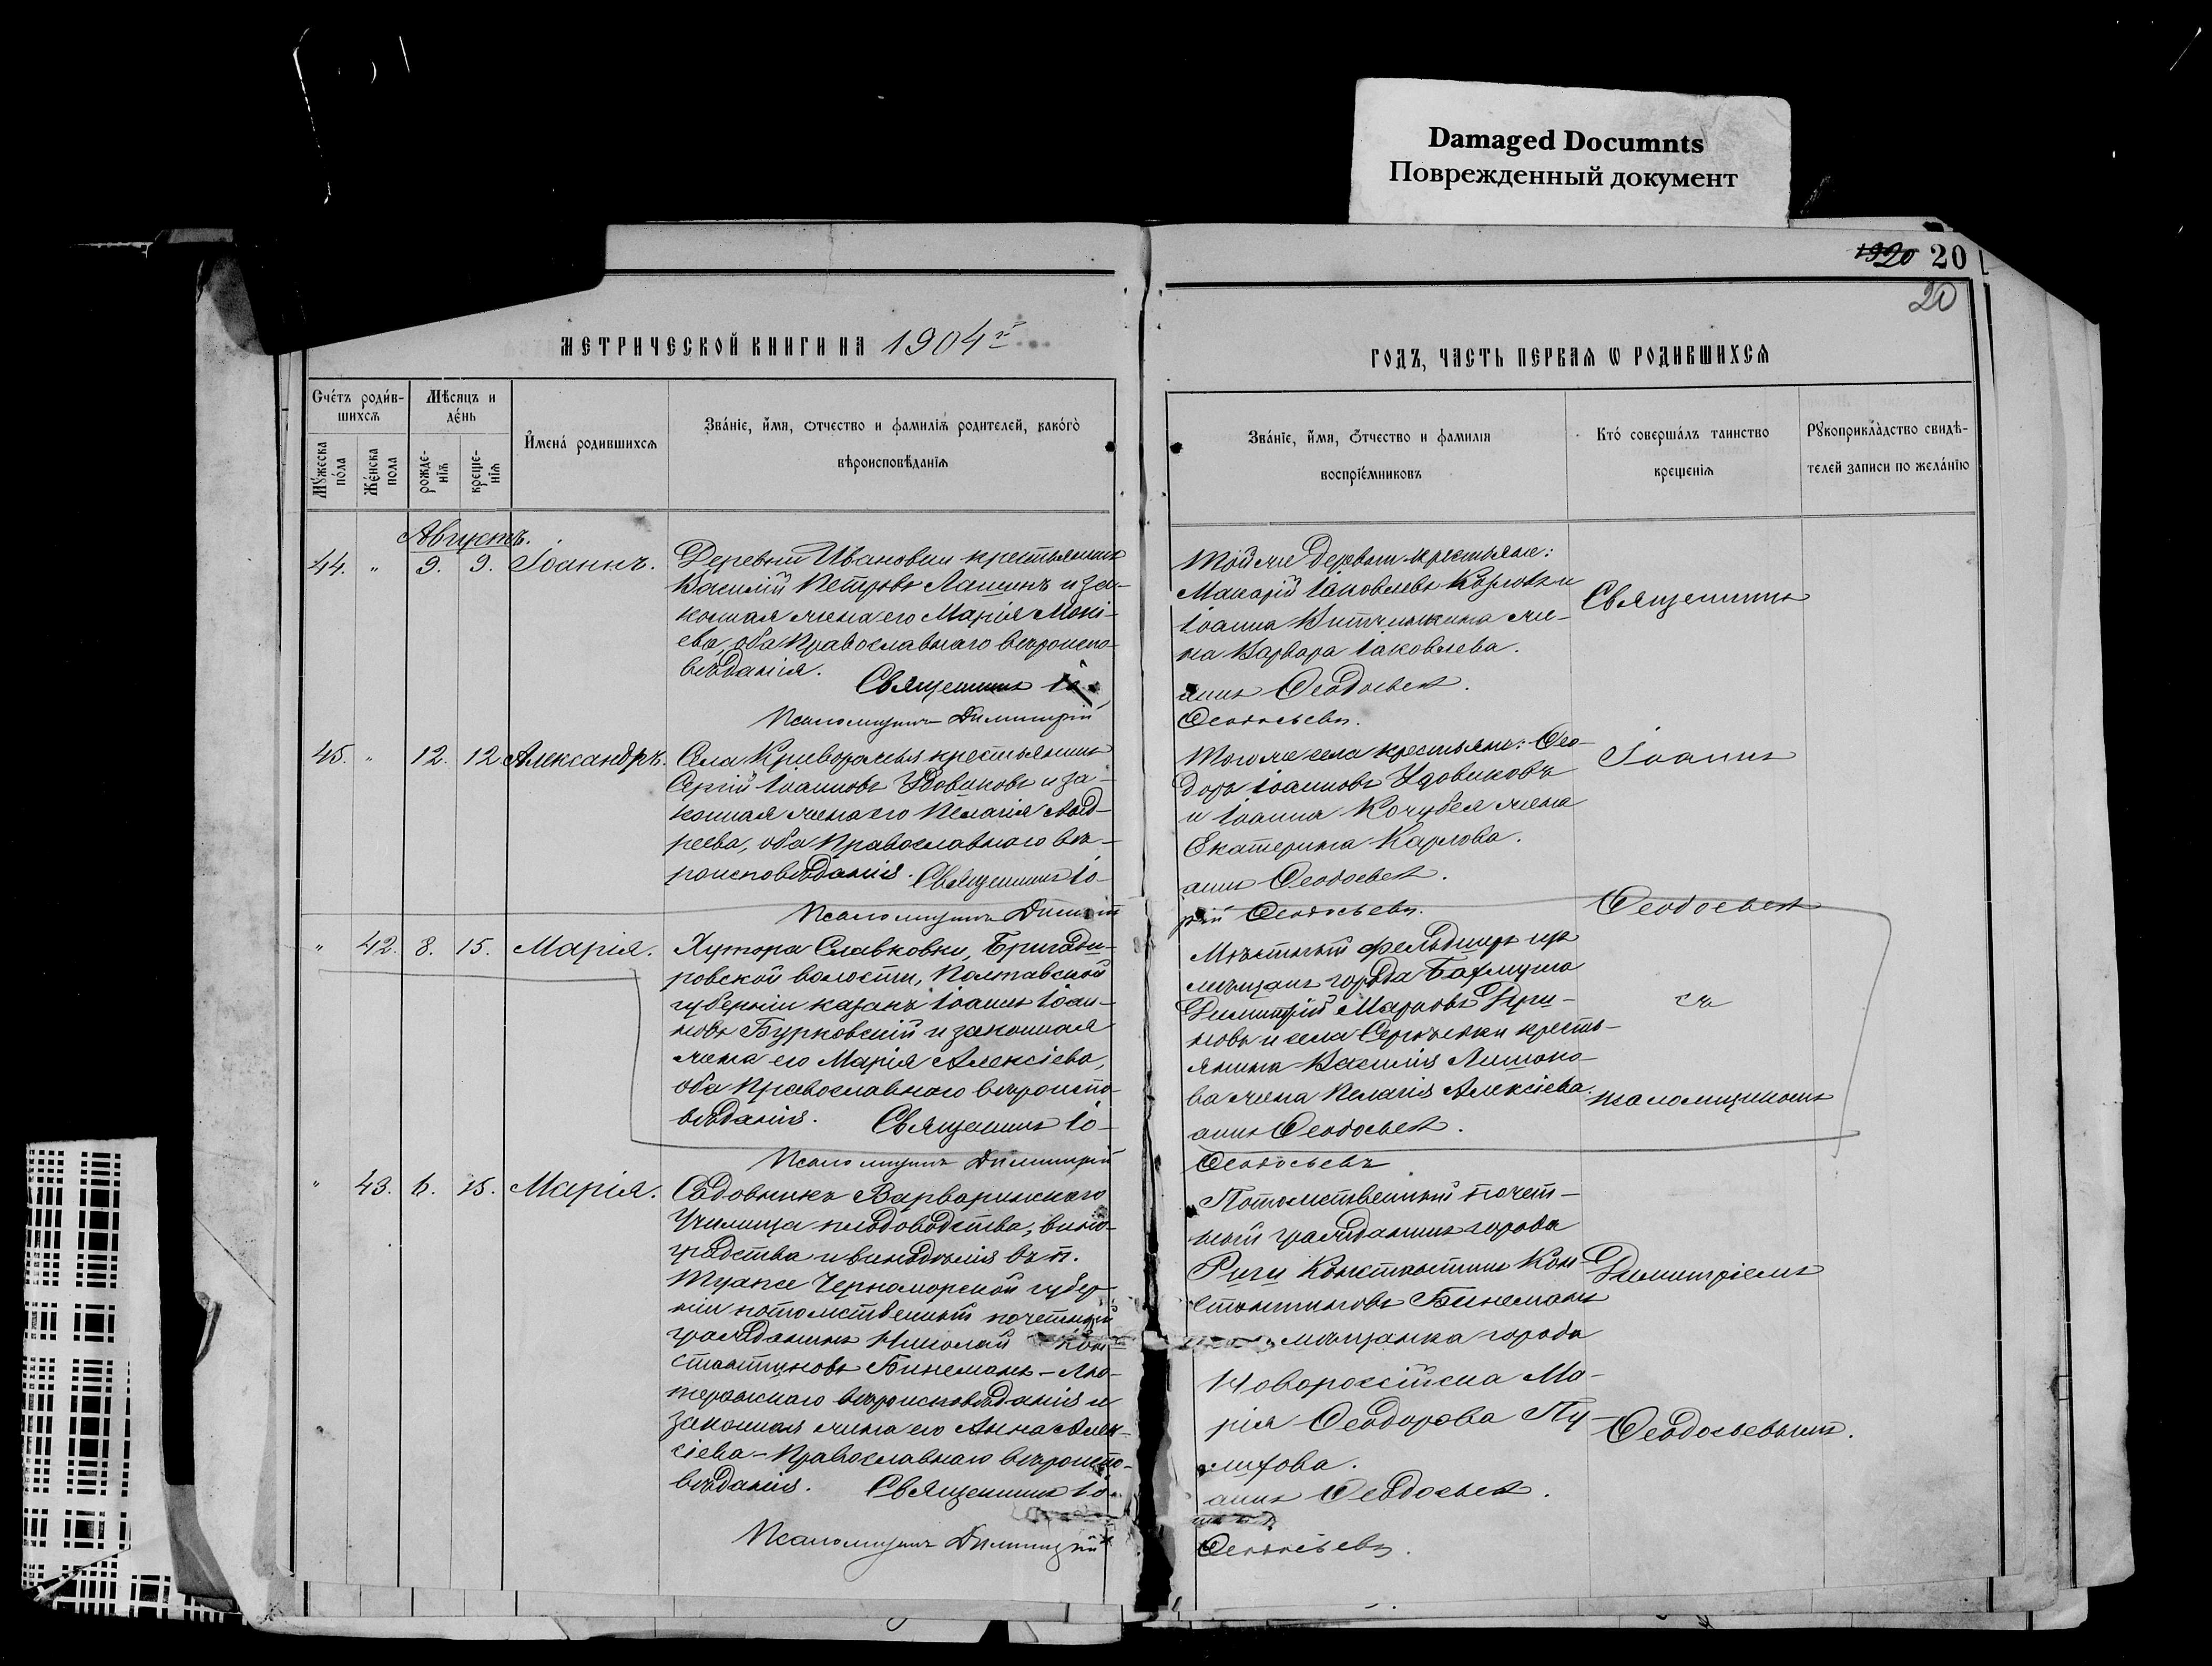 Damaged Documnts
Поврежденный документ
20
20
МЕТРИЧЕСКОЙ КНИГИ НА 1904й
ГОДЪ, ЧАСТЬ ПЕРВАѦ Ѡ РОДИВШИХСѦ
Счétъ роди́в-
шихсѧ
Мꙋ́жеска по́ла
Же́нска пола
Мѣ́сяцъ и де́нь
рожде-нїѧ
креще-нїѧ
И҆мена̀ родившихсѧ
Зва́нїе, и҆́мя, ѻтчество и фамилїѧ родителей, како́гѡ
вѣроисповѣ́данїѧ
Зва́нїе, и҆́мя, ѻ҆́тчество и фамилїя
воспрїе́мниковъ
Кто̀ совершáлъ таинство
крещенїѧ
Рꙋкоприкла̀дство свидѣ-
телей записи по жела́нїю
Августъ.
44. " 9. 9. Іоаннъ.
Деревни Ивановки крестьянинъ
Василій Петровъ Лашинъ и за-
конная жена его Марія Моисі-
ева, оба Православнаго вѣроиспо-
вѣданія.
Священникъ Іо-
Псаломщикъ Димитрій
Той же деревни крестьяне:
Макарій Іаковлевъ Козловъ и
Іоанна жена
Варвара Іаковлева.
аннъ Ѳеодосьевъ.
Ѳеодосьевъ.
Священникъ
45. " 12. 12 Александръ.
Села Криворожья крестьянинъ
Сергій Іоанновъ Удовиковъ и за-
конная жена его Пелагія Анд-
реева, оба Православнаго вѣ-
роисповѣданія. Священникъ Іо-
Псаломщикъ Димит
Того же села крестьяне: Ѳео-
доръ Іоанновъ Удовиковъ
и Іоанна Кочубея жена
Екатерина Карпова.
аннъ Ѳеодосьевъ.
рій Ѳеодосьевъ.
Іоаннъ
Ѳеодосьевъ
" 42. 8. 15. Марія.
Хутора Славковки, Бригади-
ровской волости, Полтавской
губерніи казакъ Іоаннъ Іоан-
новъ Бурковскій и законная
жена его Марія Алексіева,
оба Православнаго вѣроиспо-
вѣданія. Священникъ Іо-
Псаломщикъ Димитрій
Мѣстный фельдшеръ изъ
мѣщанъ города Бахмута
Димитрій Марковъ
и села Сергѣевки кресть-
янина Василія Лимоно-
ва жена Пелагія Алексіева.
аннъ Ѳеодосьевъ.
Ѳеодосьевъ
съ
псаломщикомъ
" 43. 6. 15. Марія.
Садовникъ Варваринскаго
Училища плодоводства, вино-
градства и винодѣлія въ п.
Туапсе Черноморской губер-
ніи потомственный почетный
гражданинъ Николай Кон-
стантиновъ Бинеманъ - Лю-
теранскаго вѣроисповѣданія и
законная жена его Анна Алек-
сіева - Православнаго вѣроиспо-
вѣданія. Священникъ Іо-
Псаломщикъ Димитрій
Потомственный почет-
ный гражданинъ города
Риги Константинъ Кон-
стантиновъ Бинеманъ
мѣщанка города
Новороссійска Ма-
рія Ѳеодорова Пу-
лихова.
аннъ Ѳеодосьевъ.
Ѳеодосьевъ.
Димитріемъ
Ѳеодосьевымъ.